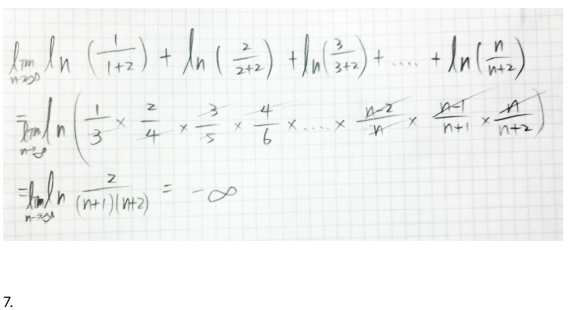 lim n→∞ ln (1/(1+2)) + ln (2/(2+2)) + ln (3/(3+2)) + .... + ln (n/(n+2))
= lim n→∞ ln (1/3 × 2/4 × 3/5 × 4/6 × .... × (n-2)/n × (n-1)/(n+1) × n/(n+2))
= lim n→∞ ln 2/((n+1)(n+2)) = -∞
7.